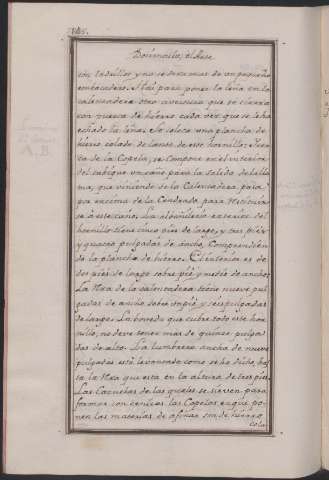 con ladrillos, y no se deve mas de un pequeño
embocadero. Hai para poner la leña en la
calentadera otra avertura que se cierra
con puerta de hierro cada vez que se ha
echado la leña. Se coloca una plancha de
hierro colado delante de este hornillo,
de la Copela; se compone en el interior
del tabique un caño para la salida de la lla-
ma, que viniendo de la Calentadera, pasa
por encima de la Cendrada para
se à este caño. La exterior del
hornillo tiene cinco pies de largo, y tres pies
y quatro pulgadas de ancho, comprendien-
do la plancha de hierro. El interior es de
dos pies de largo sobre pie y medio de ancho;
La de la calentadera tiene nueve pul-
gadas de ancho sobre un pie y seis pulgadas
de largo. La boveda que cubre todo este hor-
nillo, no deve tener mas de quince pulga-
das de alto. La lumbrera ancha de nueve
pulgadas està levantada como se ha dicho, has-
ta la que està en la altura de tres pies.
Las Cazuelas de las quales se sirven para
formar con cenizas las Copelas en que po-
nen las materias de afinar son de hierro
cola-
A. B.